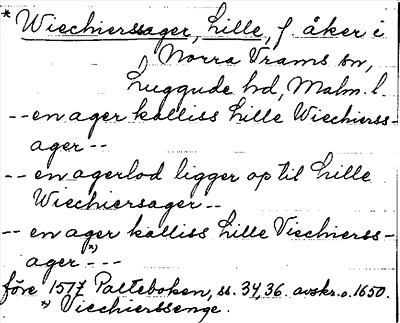 * Wiechierssager, Lille, f. åker i
Norra Vrams sn,
Luggude hd, Malm. l.
-- en ager kalliss Lille Wiechierss-
ager --
-- en agerlod ligger op til Lille
Wiechiersager --
-- en ager kalliss Lille Viechierss-
ager *) ---
före 1517 Palteboken, ss. 34, 36. avskr. o. 1650.
*) Viechierssenge.